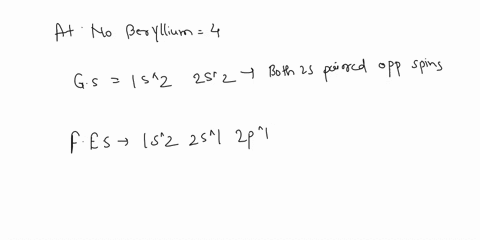 At. No Beryllium = 4
G.S = 1s^2 2s^2 → Both 2s paired opp spins
F.ES → 1s^2 2s^1 2p^1